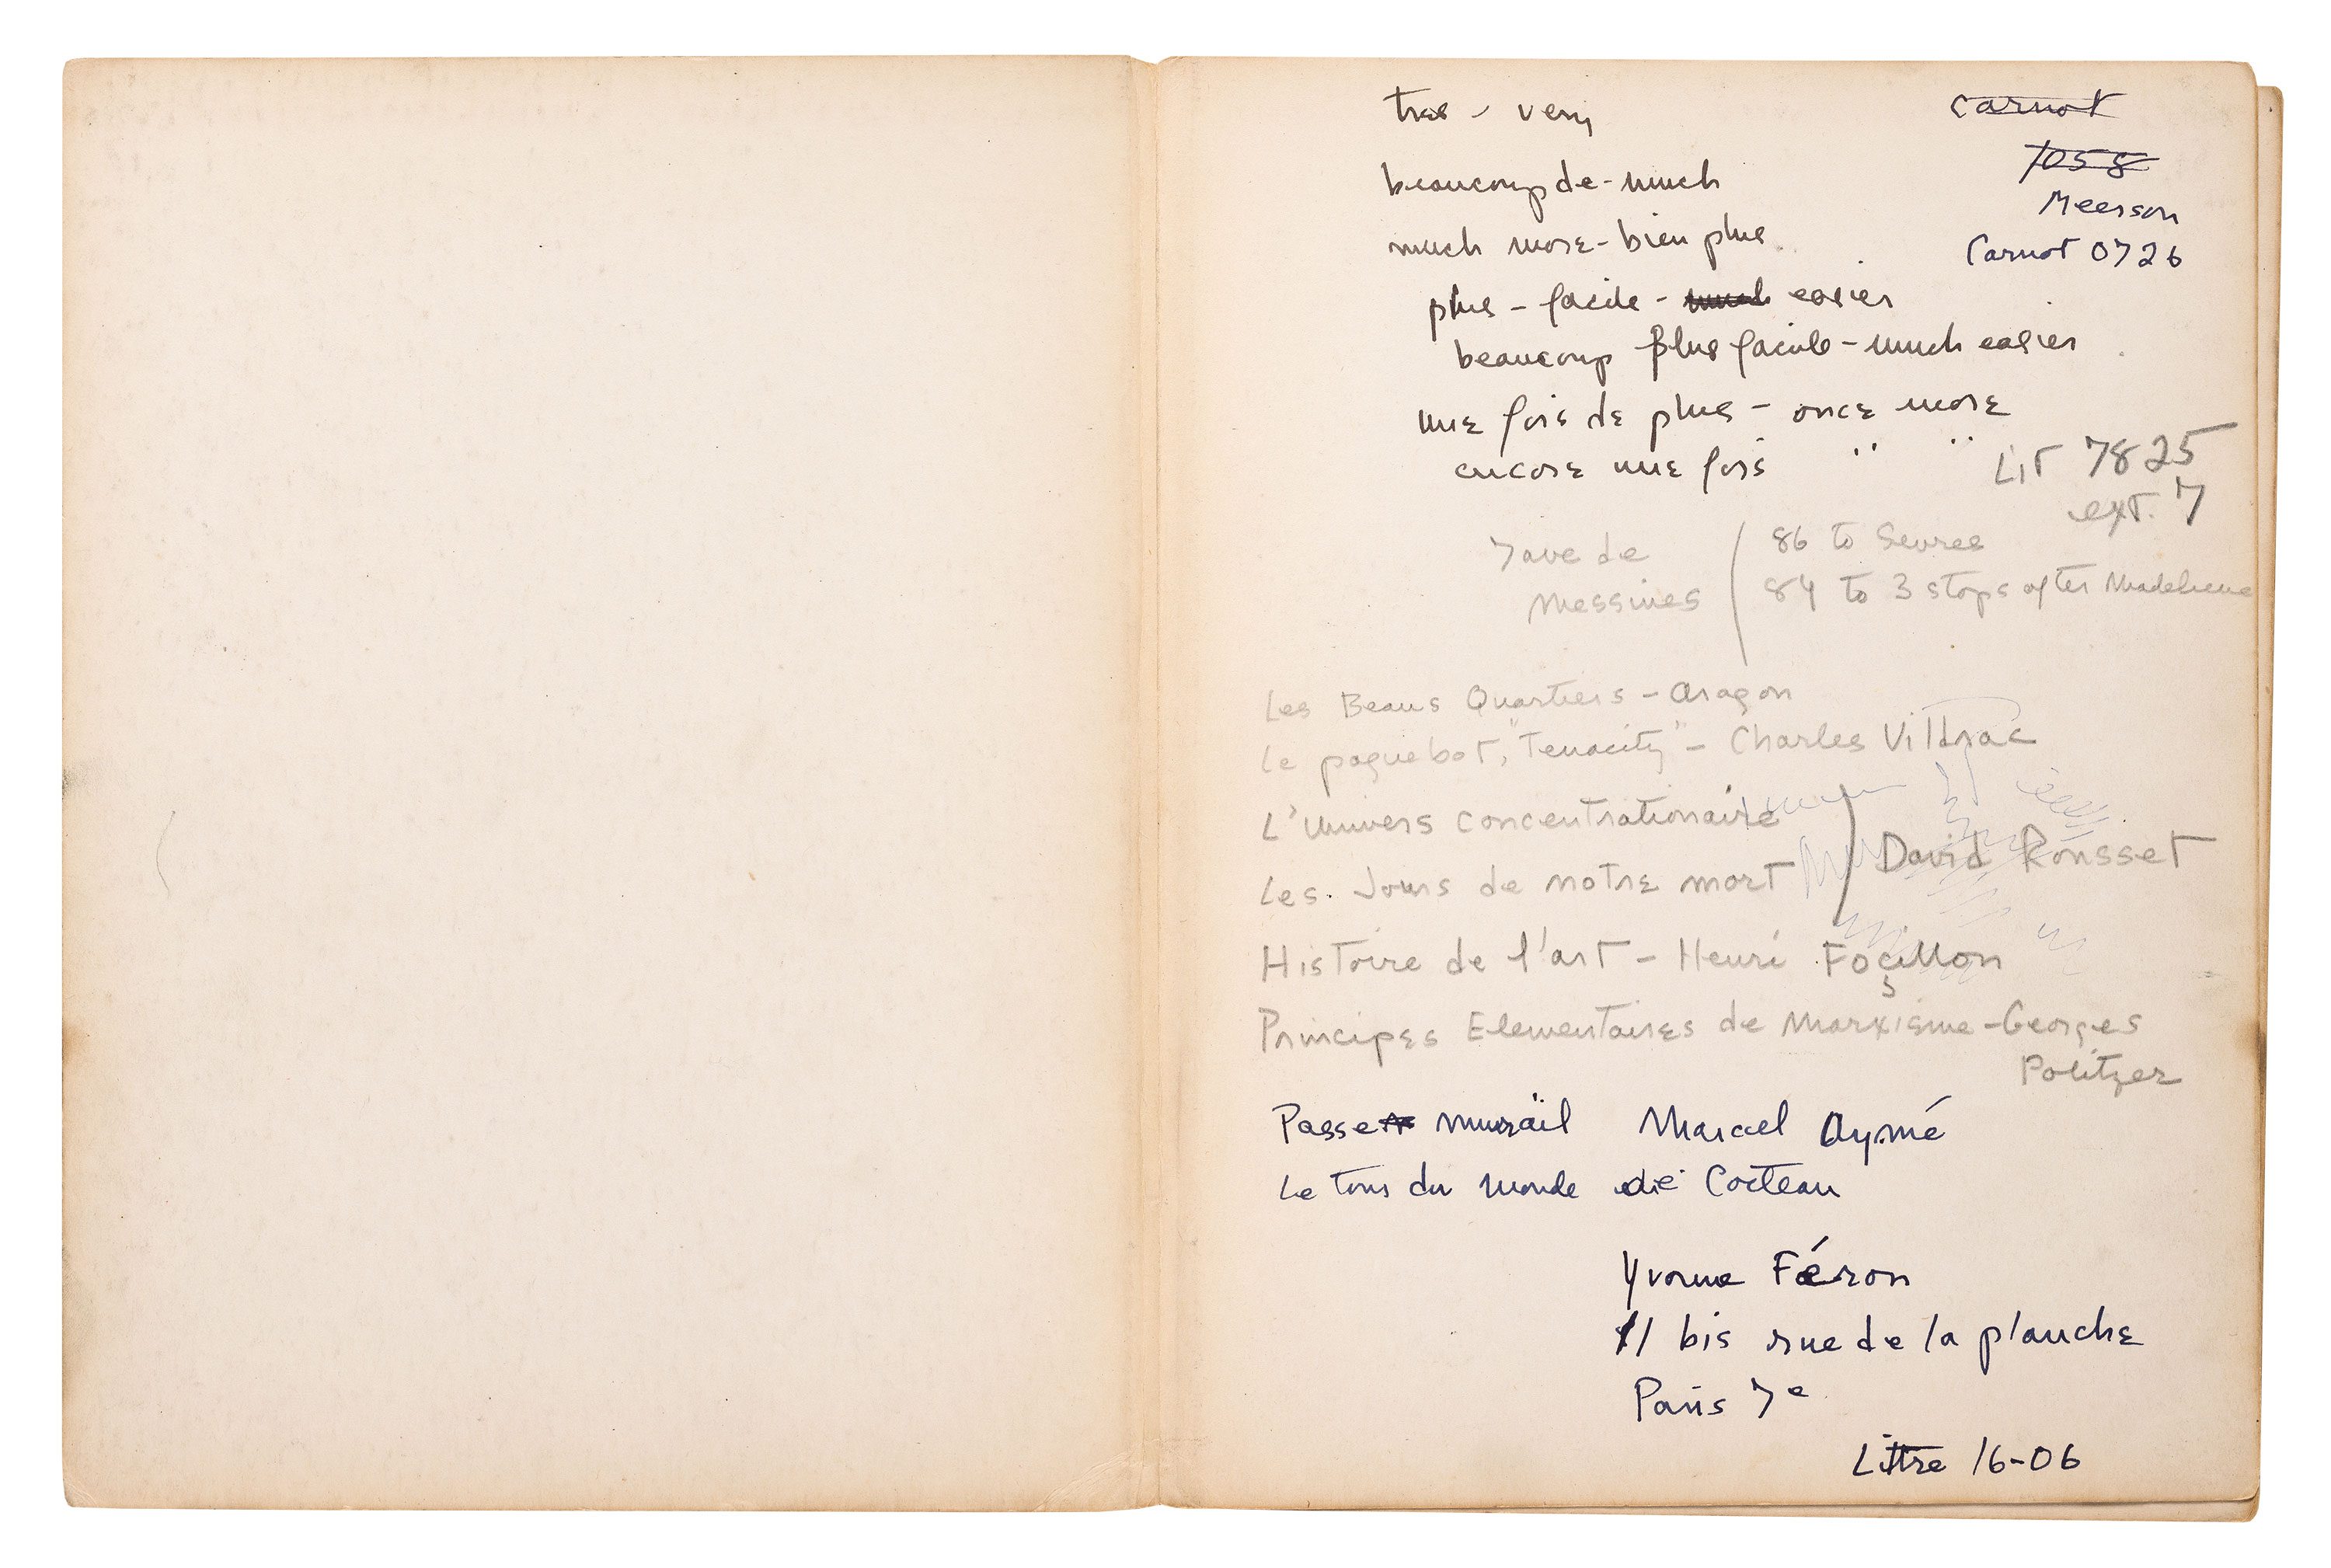 tres - very
carnot
7058
Meerson
Carnot 0726
beaucoup de - much
much more - bien plus
plus - facile - much easier
beaucoup plus facile - much easier
une fois de plus - once more
encore une fois " "
Lit 7825
ext. 7
7 ave de
Messines
86 to Sevres
84 to 3 stops after Madeleine
Les Beaus Quartiers - Aragon
Le paquebot, "Tenacity" - Charles Vildrac
L'Univers concentrationaire
Les Jours de notre mort
David Rousset
Histoire de l'art - Henri Focillon
Principes Elementaires de Marxisme - Georges
Politzer
Passe murail Marcel Aymé
Le tour du monde de Cocteau
Yvonne Féron
11 bis rue de la planche
Paris 7e
Littre 16-06